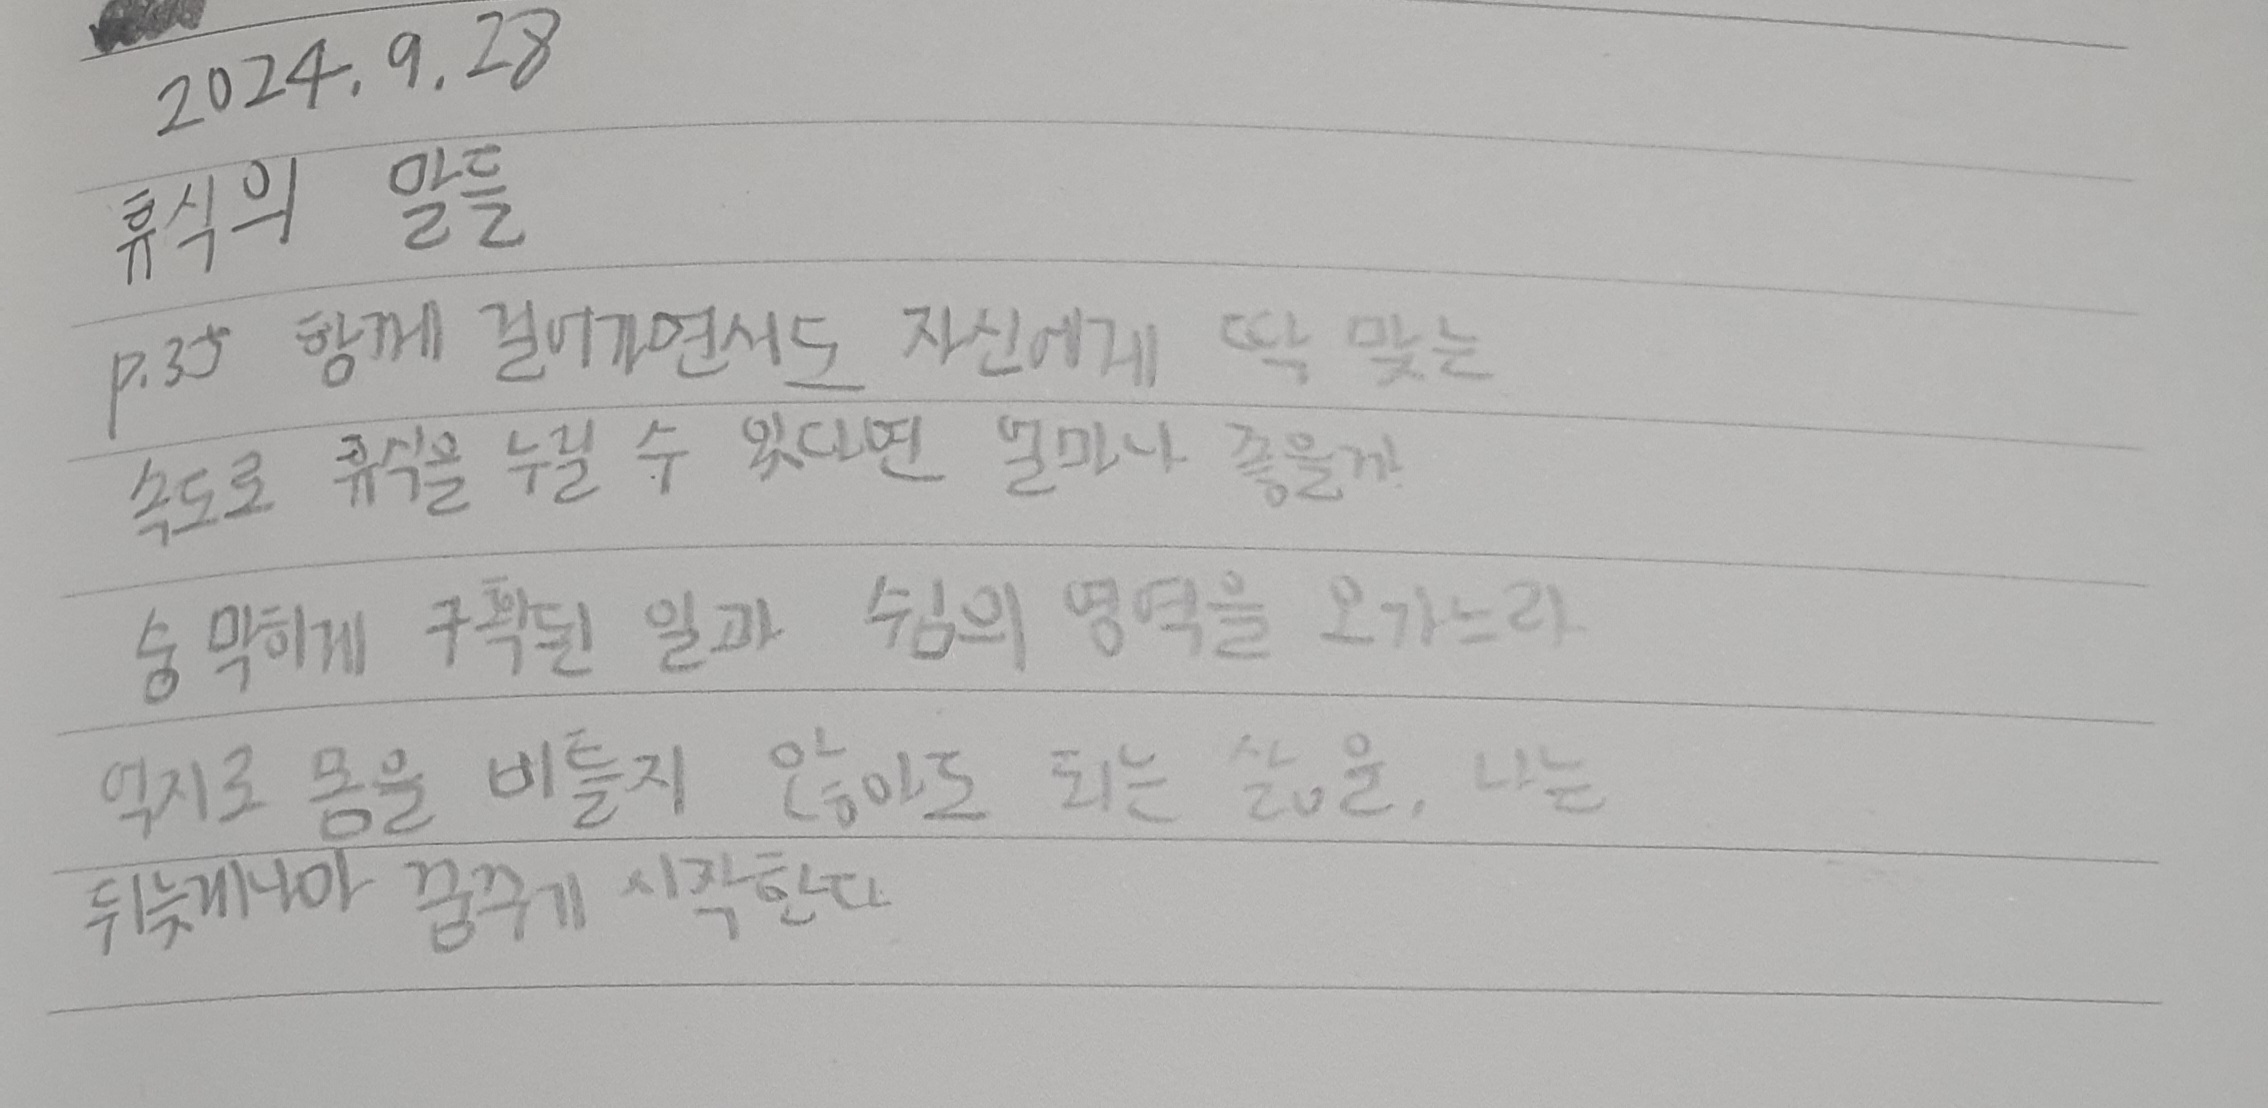 2024. 9. 28
휴식의 말들
p.35 함께 걸어가면서도 자신에게 딱 맞는
속도로 휴식을 누릴 수 있다면 얼마나 좋을까.
숨 막히게 구획된 일과 쉼의 영역을 오가느라
억지로 몸을 비틀지 않아도 되는 삶을, 나는
뒤늦게나마 꿈꾸게 시작한다